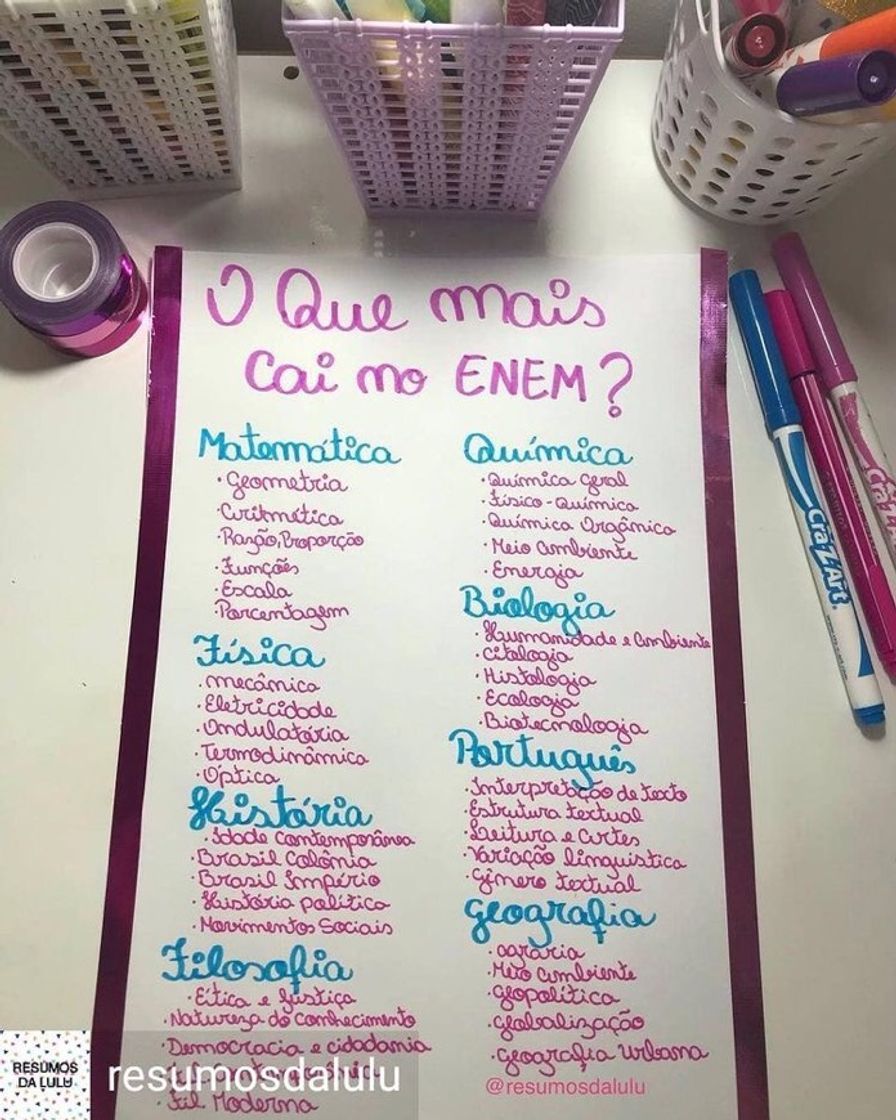 O Que mais
Cai no ENEM?
Matemática
· Geometria
· Aritmética
· Razão, Proporção
· Funções
· Escala
· Porcentagem
Física
· mecânica
· Eletricidade
· Ondulatória
· Termodinâmica
· Óptica
História
· Idade Contemporânea
· Brasil Colônia
· Brasil Império
· História política
· Movimentos Sociais
Filosofia
· Ética e Justiça
· Natureza do Conhecimento
· Democracia e cidadania
· Fil Moderna
Química
· Química Geral
· Físico-Química
· Química Orgânica
· Meio Ambiente
· Energia
Biologia
· Humanidade e Ambiente
· Citologia
· Histologia
· Ecologia
· Biotecnologia
Português
· Interpretação de texto
· Estrutura textual
· Leitura e Artes
· Variação linguistica
· Gênero textual
Geografia
· agrária
· Meio Ambiente
· Geopolítica
· Globalização
· Geografia Urbana
@resumosdalulu
Cra-Z-Art
RESUMOS
DA LULU
resumosdalulu